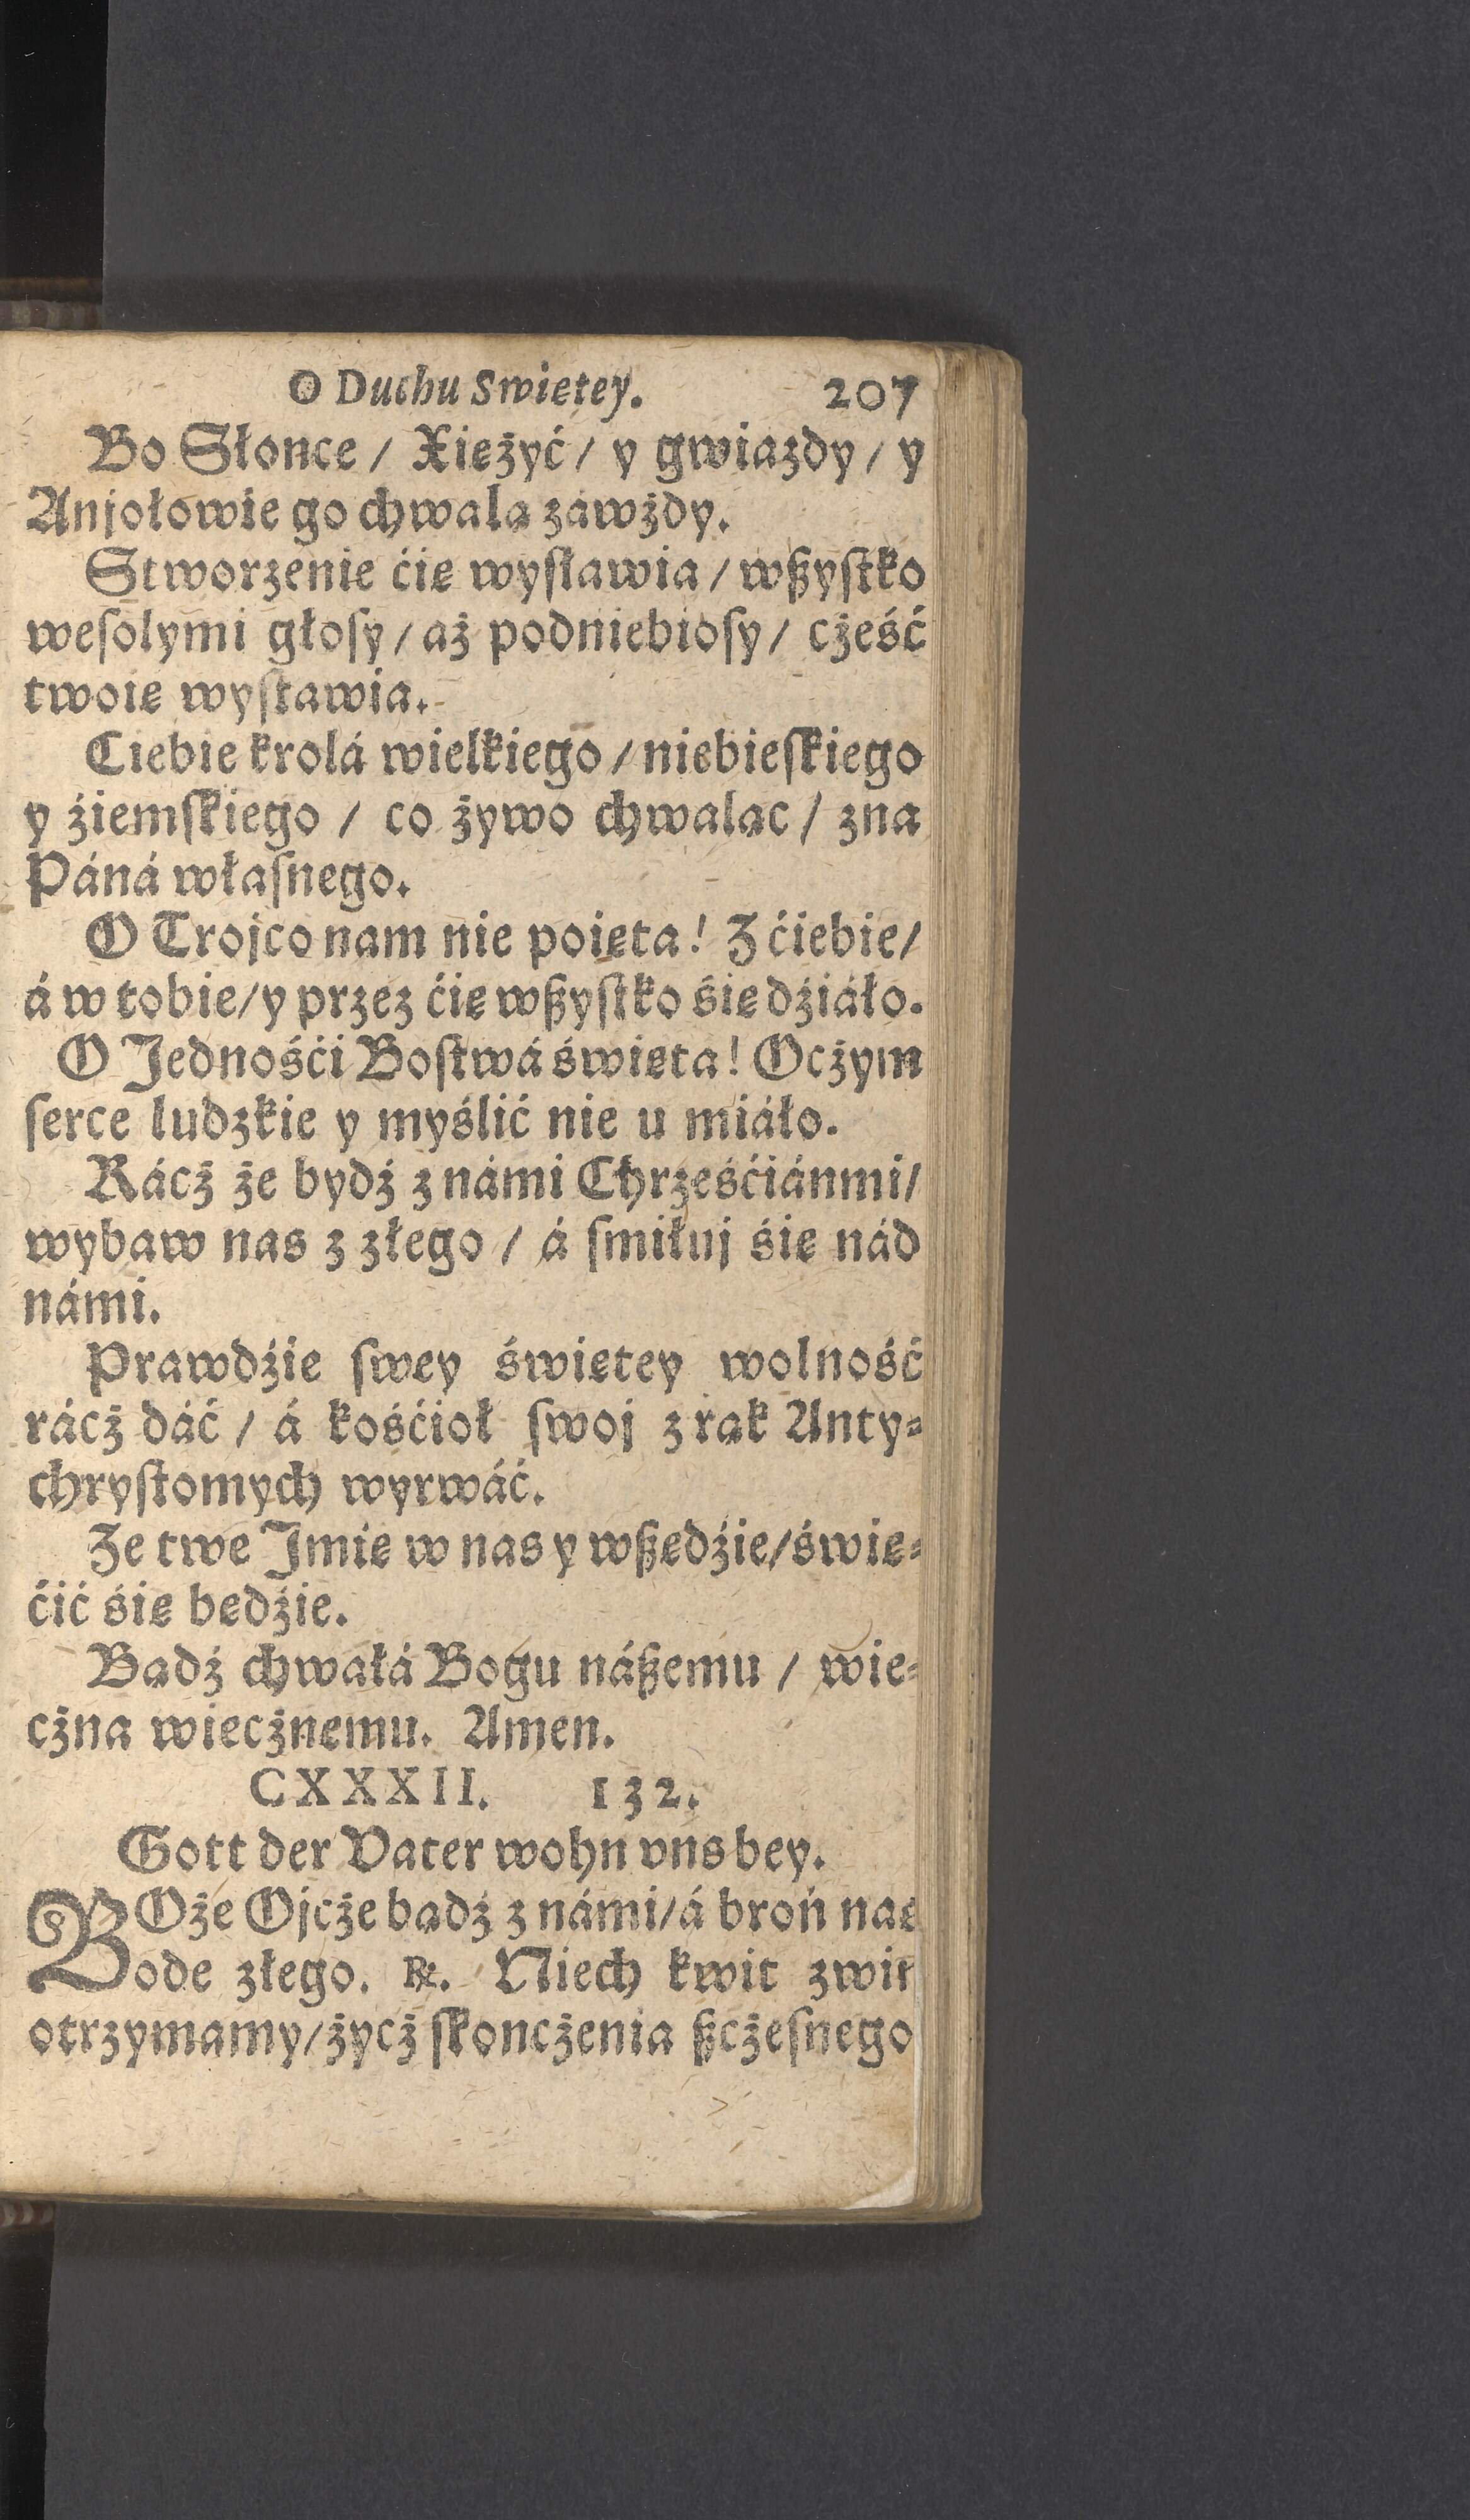 O Duchu Swietey. 207
Bo Słonce / Xięźyć / y gwiazdy / y
Anjołowie go chwalą záwżdy.
Stworzenie ćię wysławia / wßyſtko
weſolymi głoſy / aż podniebioſy / cżeść
twoię wyſtawia.
Ciebie krolá wielkiego / niebieſkiego
y źiemſkiego / co żywo chwaląc / zna
Páná właſnego.
O Trojco nam nie poięta! Z ćiebie /
á w tobie / y przez ćię wßyſtko śię dźiáło.
O Jednośći Boſtwá święta! Ocżym
ſerce ludzkie y myślić nie u miáło.
Rácż że bydź z námi Chrześćiánmi /
wybaw nas z złego / á ſmiłuj śię nád
námi.
Prawdźie ſwey świętey wolność
rácż dáć / á kośćioł ſwoj z rąk Anty=
chryſtomych wyrwáć.
Ze twe Jmię w nas y wßędźie / świę=
ćić śię będźie.
Bądź chwałá Bogu náßemu / wie=
cżna wiecżnemu. Amen.
CXXXII. 132.
Gott der Vater wohn vns bey.
BOże Ojcże bądź z námi / á broń nas
ode złego. ℟. Niech kwit zwin
otrzymamy / życż ſkoncżenia ßcżeſnego